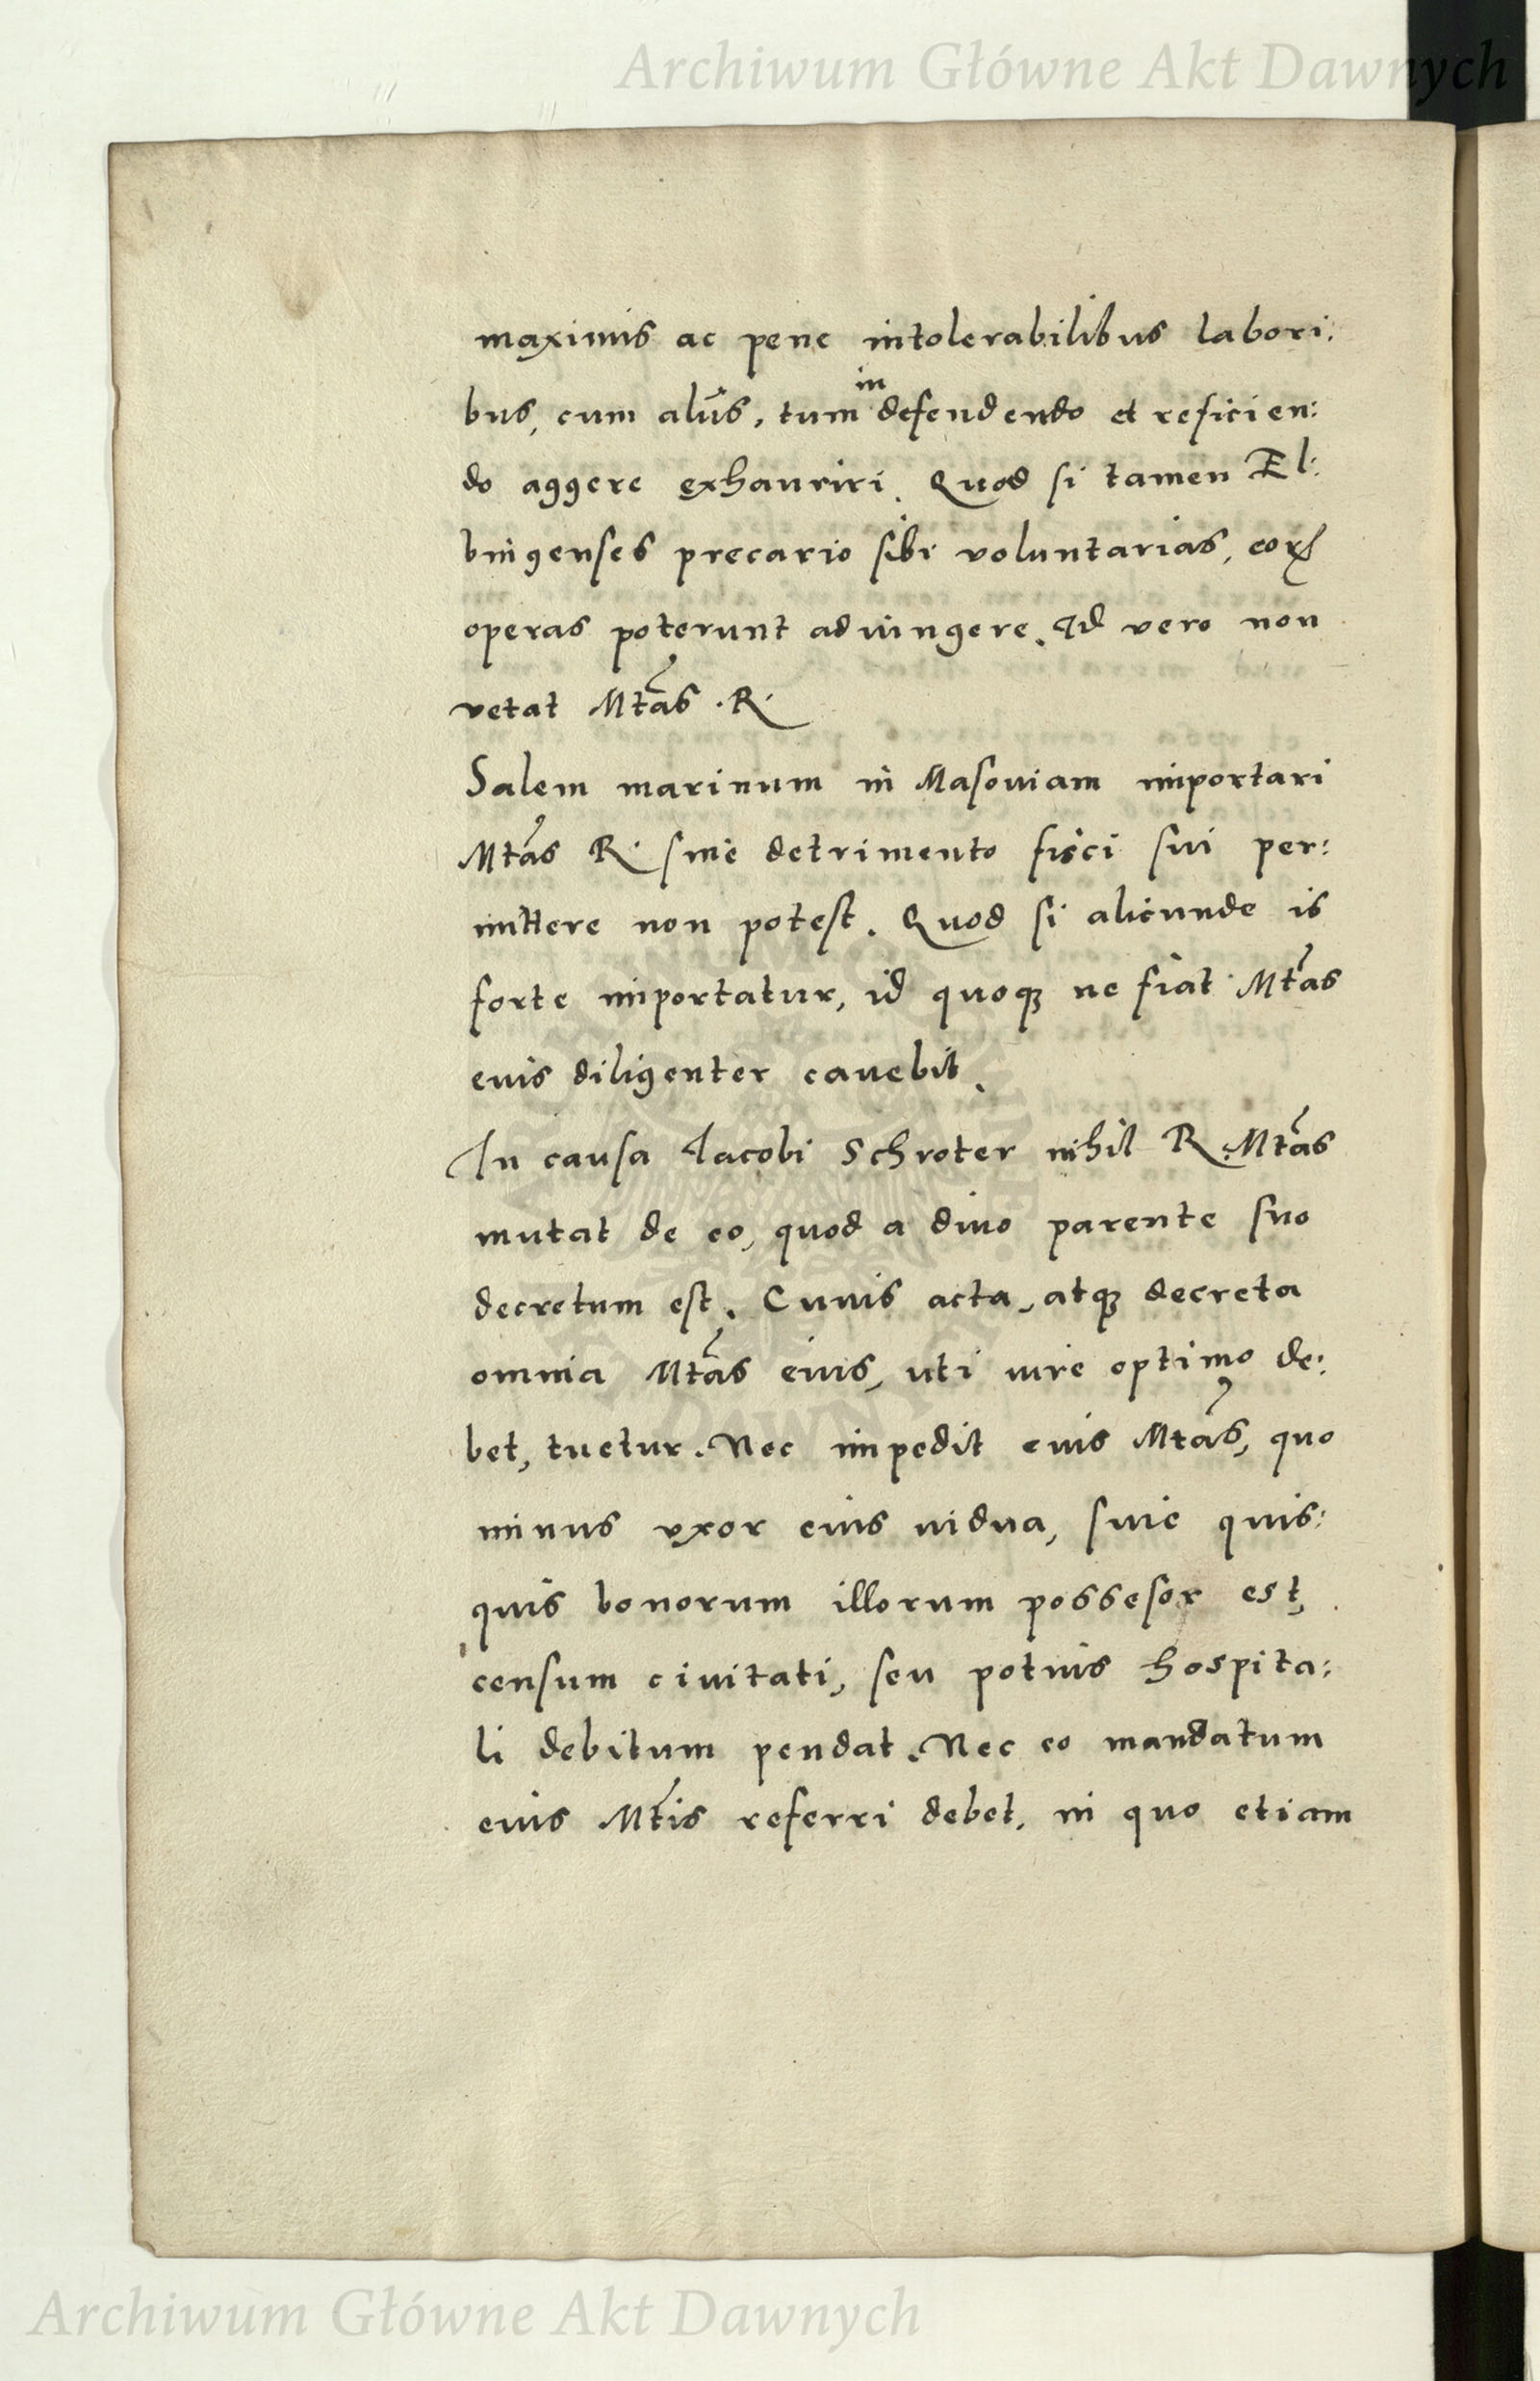 Archiwum Główne Akt Dawnych
maximis ac pene intolerabilibus labori:
bus, cum alijs, tum in defendendo et reficien:
do aggere exhauriri. Quod si tamen El:
bingenses precario sibi voluntarias, eoꝝ
operas poterunt adiungere. Id vero non
vetat Mtãs .R.
Salem marinum in Masouiam importari
Mtãs R. sine detrimento fisci sui per:
mittere non potest. Quod si alicunde is
forte importatur, id quoqꝫ ne fiat Mtãs
euis diligenter cauebit.
In causa Iacobi Schroter nihil R. Mtãs
mutat de eo, quod a diuo parente suo
decretum est. Cuuis acta, atqꝫ decreta
omnia Mtãs eius, uti iure optimo de:
bet, tuetur. Nec impedit euis Mtãs, quo
minus vxor eius uidua, siue quis:
quis bonorum illorum possesor est,
censum ciuitati, seu potuis hospita:
li debitum pendat. Nec eo mandatum
euis Mtis referri debet, in quo etiam
Archiwum Główne Akt Dawnych